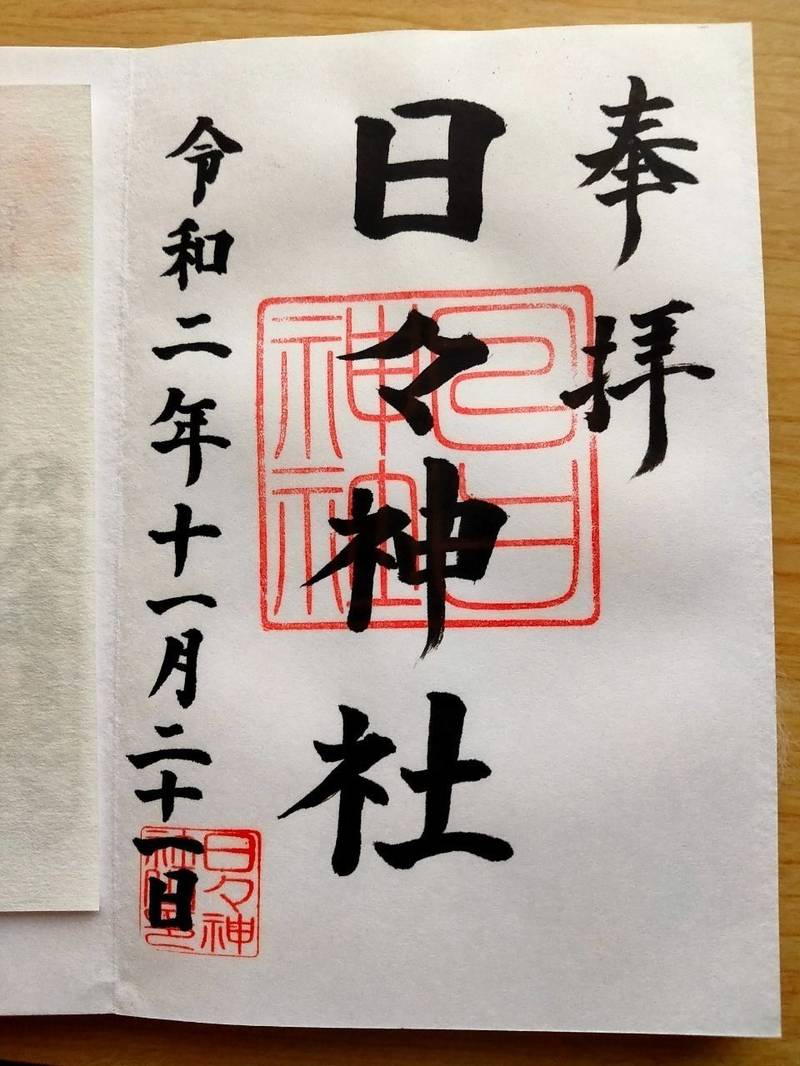 奉拝
日々神社
神社
令和二年十一月二十一日
日々神